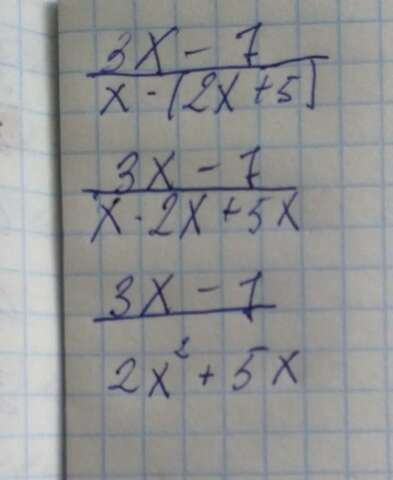 3x - 7
x · (2x + 5)
3x - 7
x · 2x + 5x
3x - 7
2x² + 5x